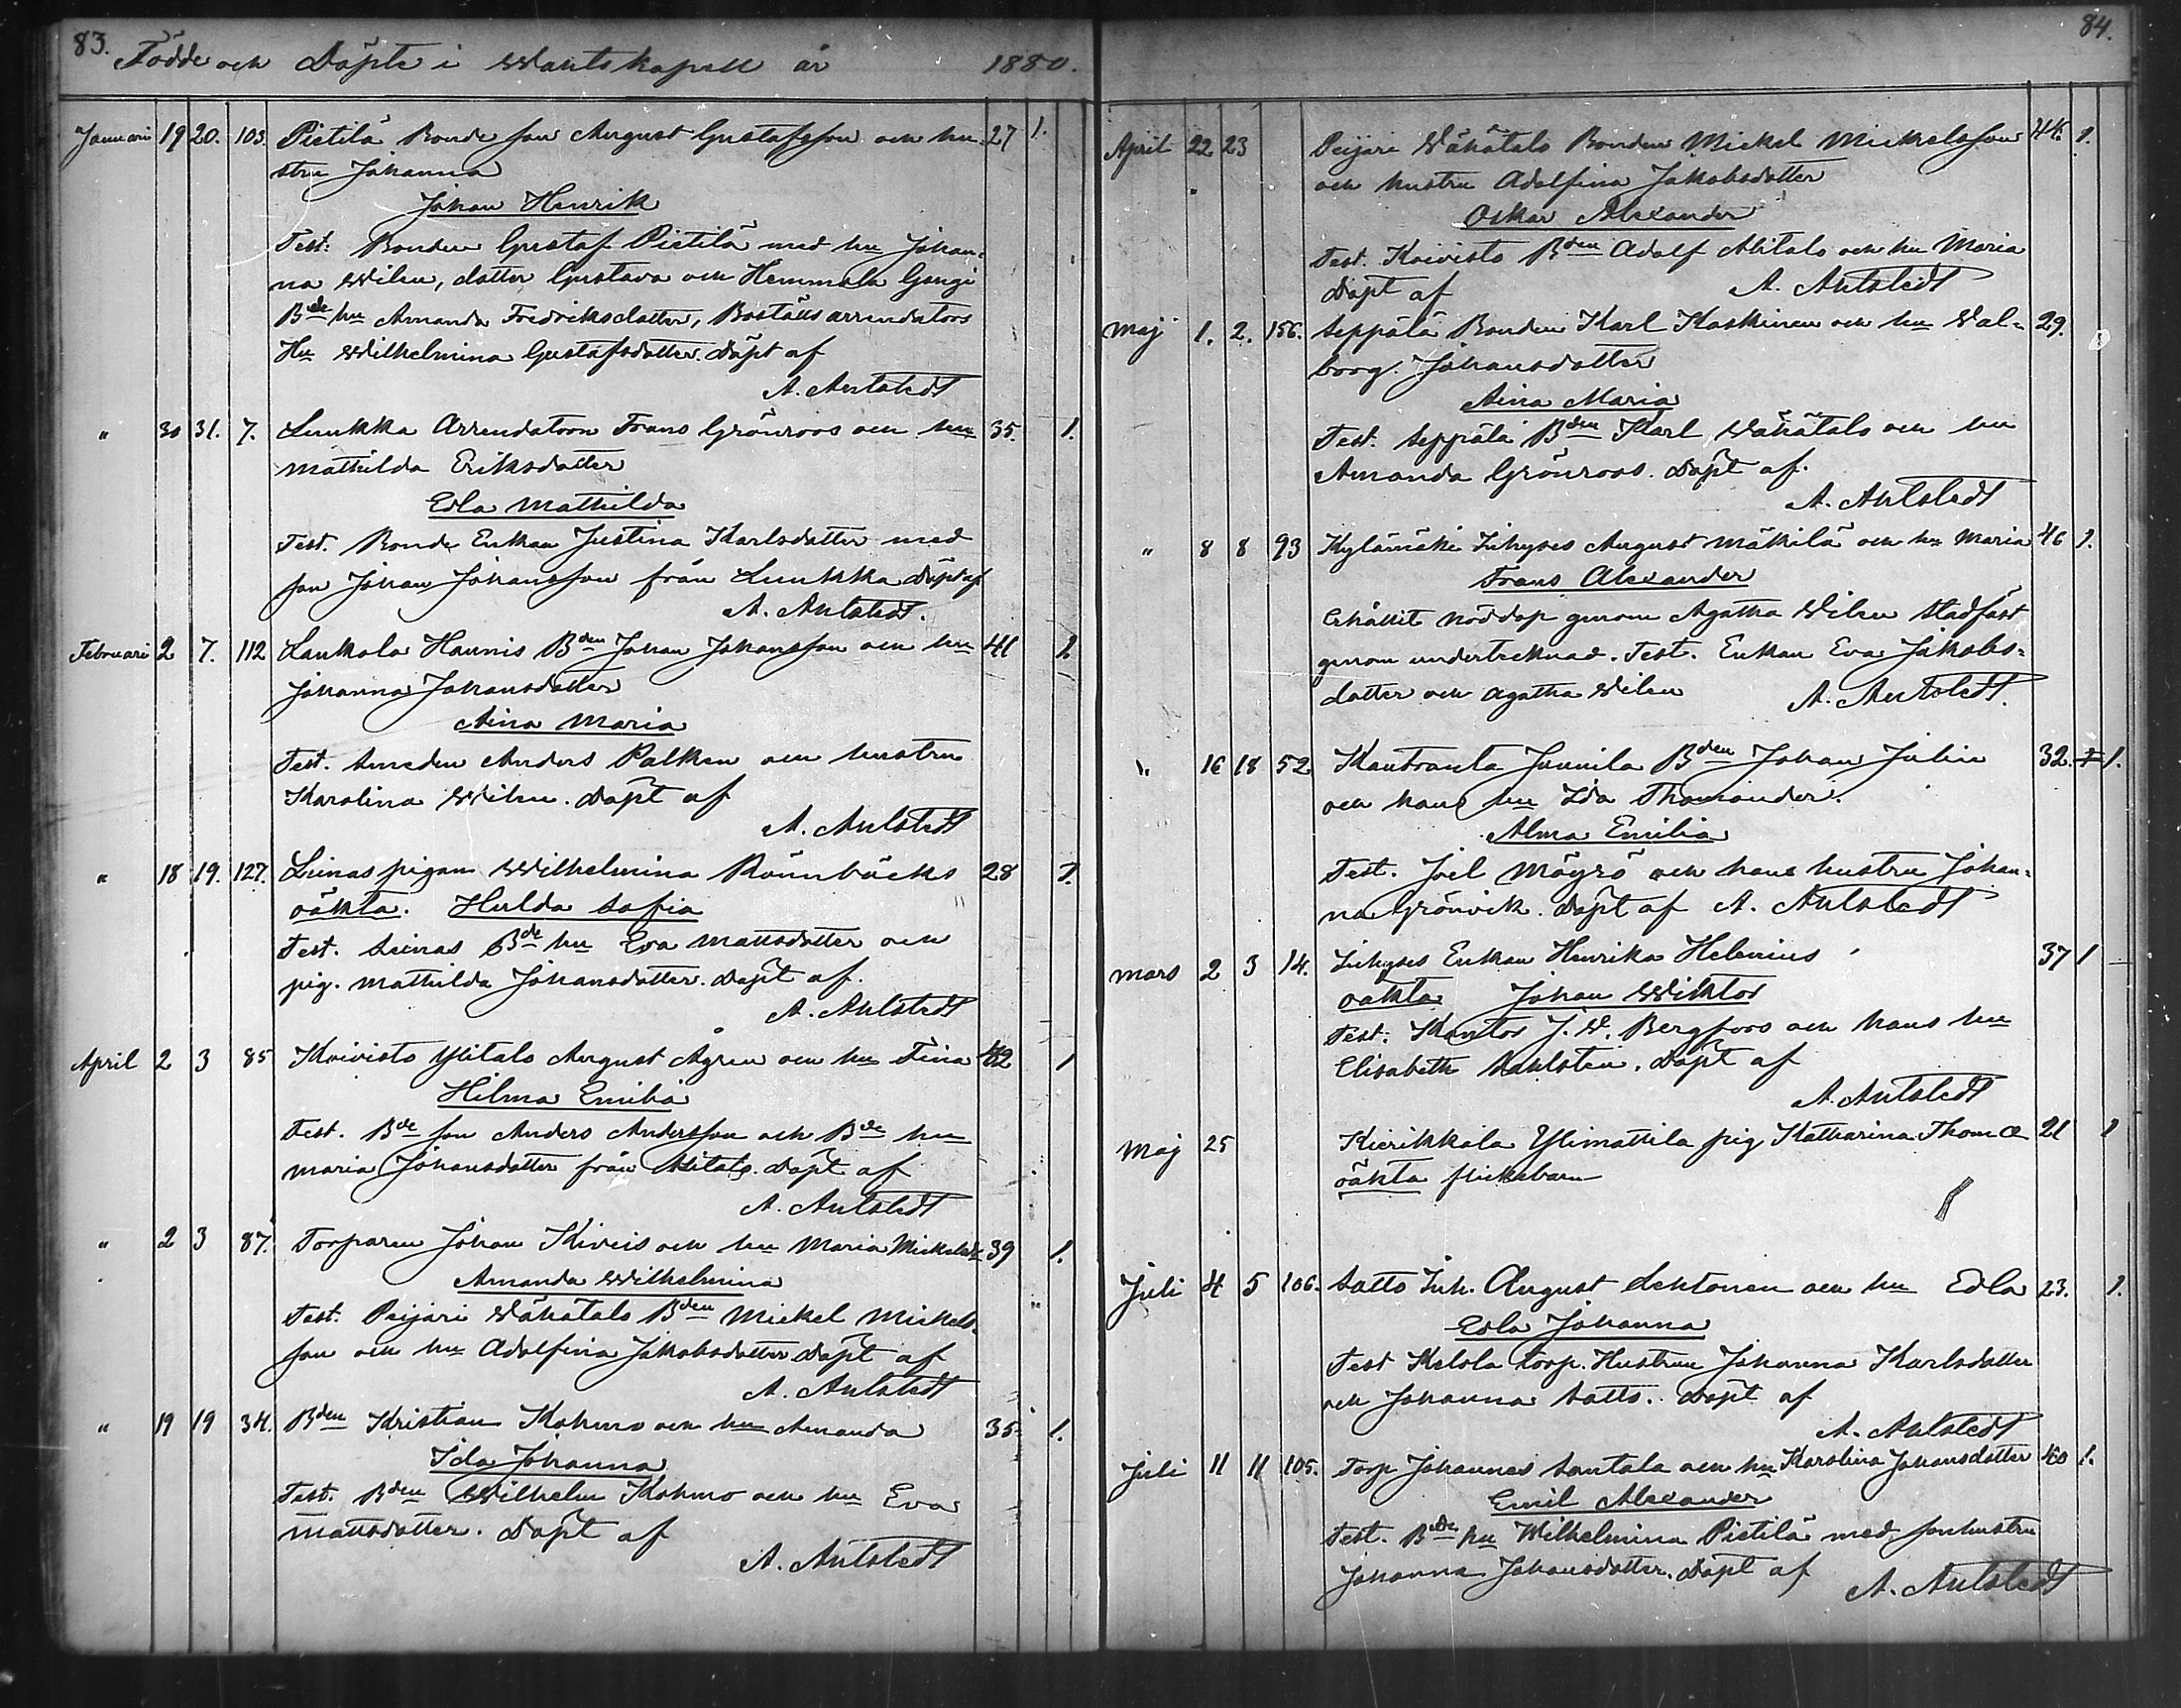 83.
Födde och Döpte i Wantskapell år 1880.
Januari 19 20. 103. Pietilä Bonde son August Gustafsson och hu- 27 1.
stru Johanna
Johan Henrik
Test: Bonden Gustaf Pietilä med hu Johan-
na Wilen, dotter Gustava och Hemmola
Bde hu Amanda Fredriksdotter, Boställsarrendators
Hu Wilhelmina Gustafsdotter. Döpt af
A. Ahlstedt
" 30 31. 7. Luukka Arrendatorn Frans Grönroos och hu 35. 1.
Mathilda Eriksdotter
Edla Mathilda
Test. Bonde Enkan Justina Karlsdotter med
son Johan Johansson från Luukka Döpt af
A. Ahlstedt.
Februari 2 7. 112 Laukola Hannis Bden Johan Johansson och hu 41 1.
Johanna Johansdotter
Aina Maria
Test. Smeden Anders Palken och hustru
Karolina Wilen. Döpt af
A. Ahlstedt
" 18 19. 127. Leinas pigan Wilhelmina Rönnbäcks 28 1.
oäkta. Hulda Sofia
Test. Leinas Bde hu Eva Mattsdotter och
pig. Mathilda Johansdotter. Döpt af.
A. Ahlstedt
April 2 3 85 Koivisto Ylitalo August Ågren och hu Fina 42 1
Hilma Emilia
Test. Bde son Anders Andersson och Bde hu
Maria Johansdotter från Alitalo. Döpt af
A. Ahlstedt
" 2 3 87. Torparen Johan Kiveis och hu Maria Mickelsdr 39 1.
Amanda Wilhelmina
Test. Peijari Wähätalo Bden Mickel Mickels-
son och hu Adolfina Jakobsdotter Döpt af
A. Ahlstedt
" 19 19 34. Bden Kristian Kohmo och hu Amanda 35 1.
Ida Johanna
Test. Bden Wilhelm Kohmo och hu Eva
Mattsdotter. Döpt af
A. Ahlstedt
84.
April 22 23 Peijari Wähätalo Bonden Mickel Mickelsson 44. 1.
och hustru Adolfina Jakobsdotter
Oskar Alexander
Test. Koivisto Bden Adolf Alitalo och hu Maria
Döpt af A. Ahlstedt
Maj 1. 2. 156. Seppälä Bonden Karl Koskinen och hu Wal- 29.
borg. Johansdotter
Aina Maria
Test. Seppälä Bden Karl Wähätalo och hu
Amanda Grönroos. Döpt af.
A. Ahlstedt
" 8 8 93 Kylänmäki Inhyses August Mäkilä och hu Maria 46 1.
Frans Alexander
Erhållit nöddop genom Agatha Wilen stadfäst
genom undertecknad. Test. Enkan Eva Jakobs-
dotter och Agatha Wilen A. Ahlstedt.
" 16 18 52 Kautranta Junnila Bden Johan Julin 32. 1.
och hans hu Ida Thomander.
Alma Emilia
Test. Joel Mäyrö och hans hustru Johan-
na Grönvik. Döpt af A. Ahlstedt
Mars 2 3 14. Inhyses Enkan Henrika Helenius 37 1
oäkta Johan Wiktor
Test: Kantor J. W. Bergroos och hans hu
Elisabeth Dahlsten. Döpt af
A. Ahlstedt
Maj 25 Kierikkala Ylimattila pig Katharina Thomæ 21 1
oäkta flickebarn
Juli 4 5 106. Satto Inh. August Lehtonen och hu Edla 23. 1.
Edla Johanna
Test Kelola torp. Hustrun Johanna Karlsdotter
och Johanna Satto. Döpt af
A. Ahlstedt
Juli 11 11 105. Torp Johannes Santala och hu Karolina Johansdotter 40 1.
Emil Alexander
Test. Bde hu Wilhelmina Pietilä med sonhustru
Johanna Johansdotter. Döpt af
A. Ahlstedt